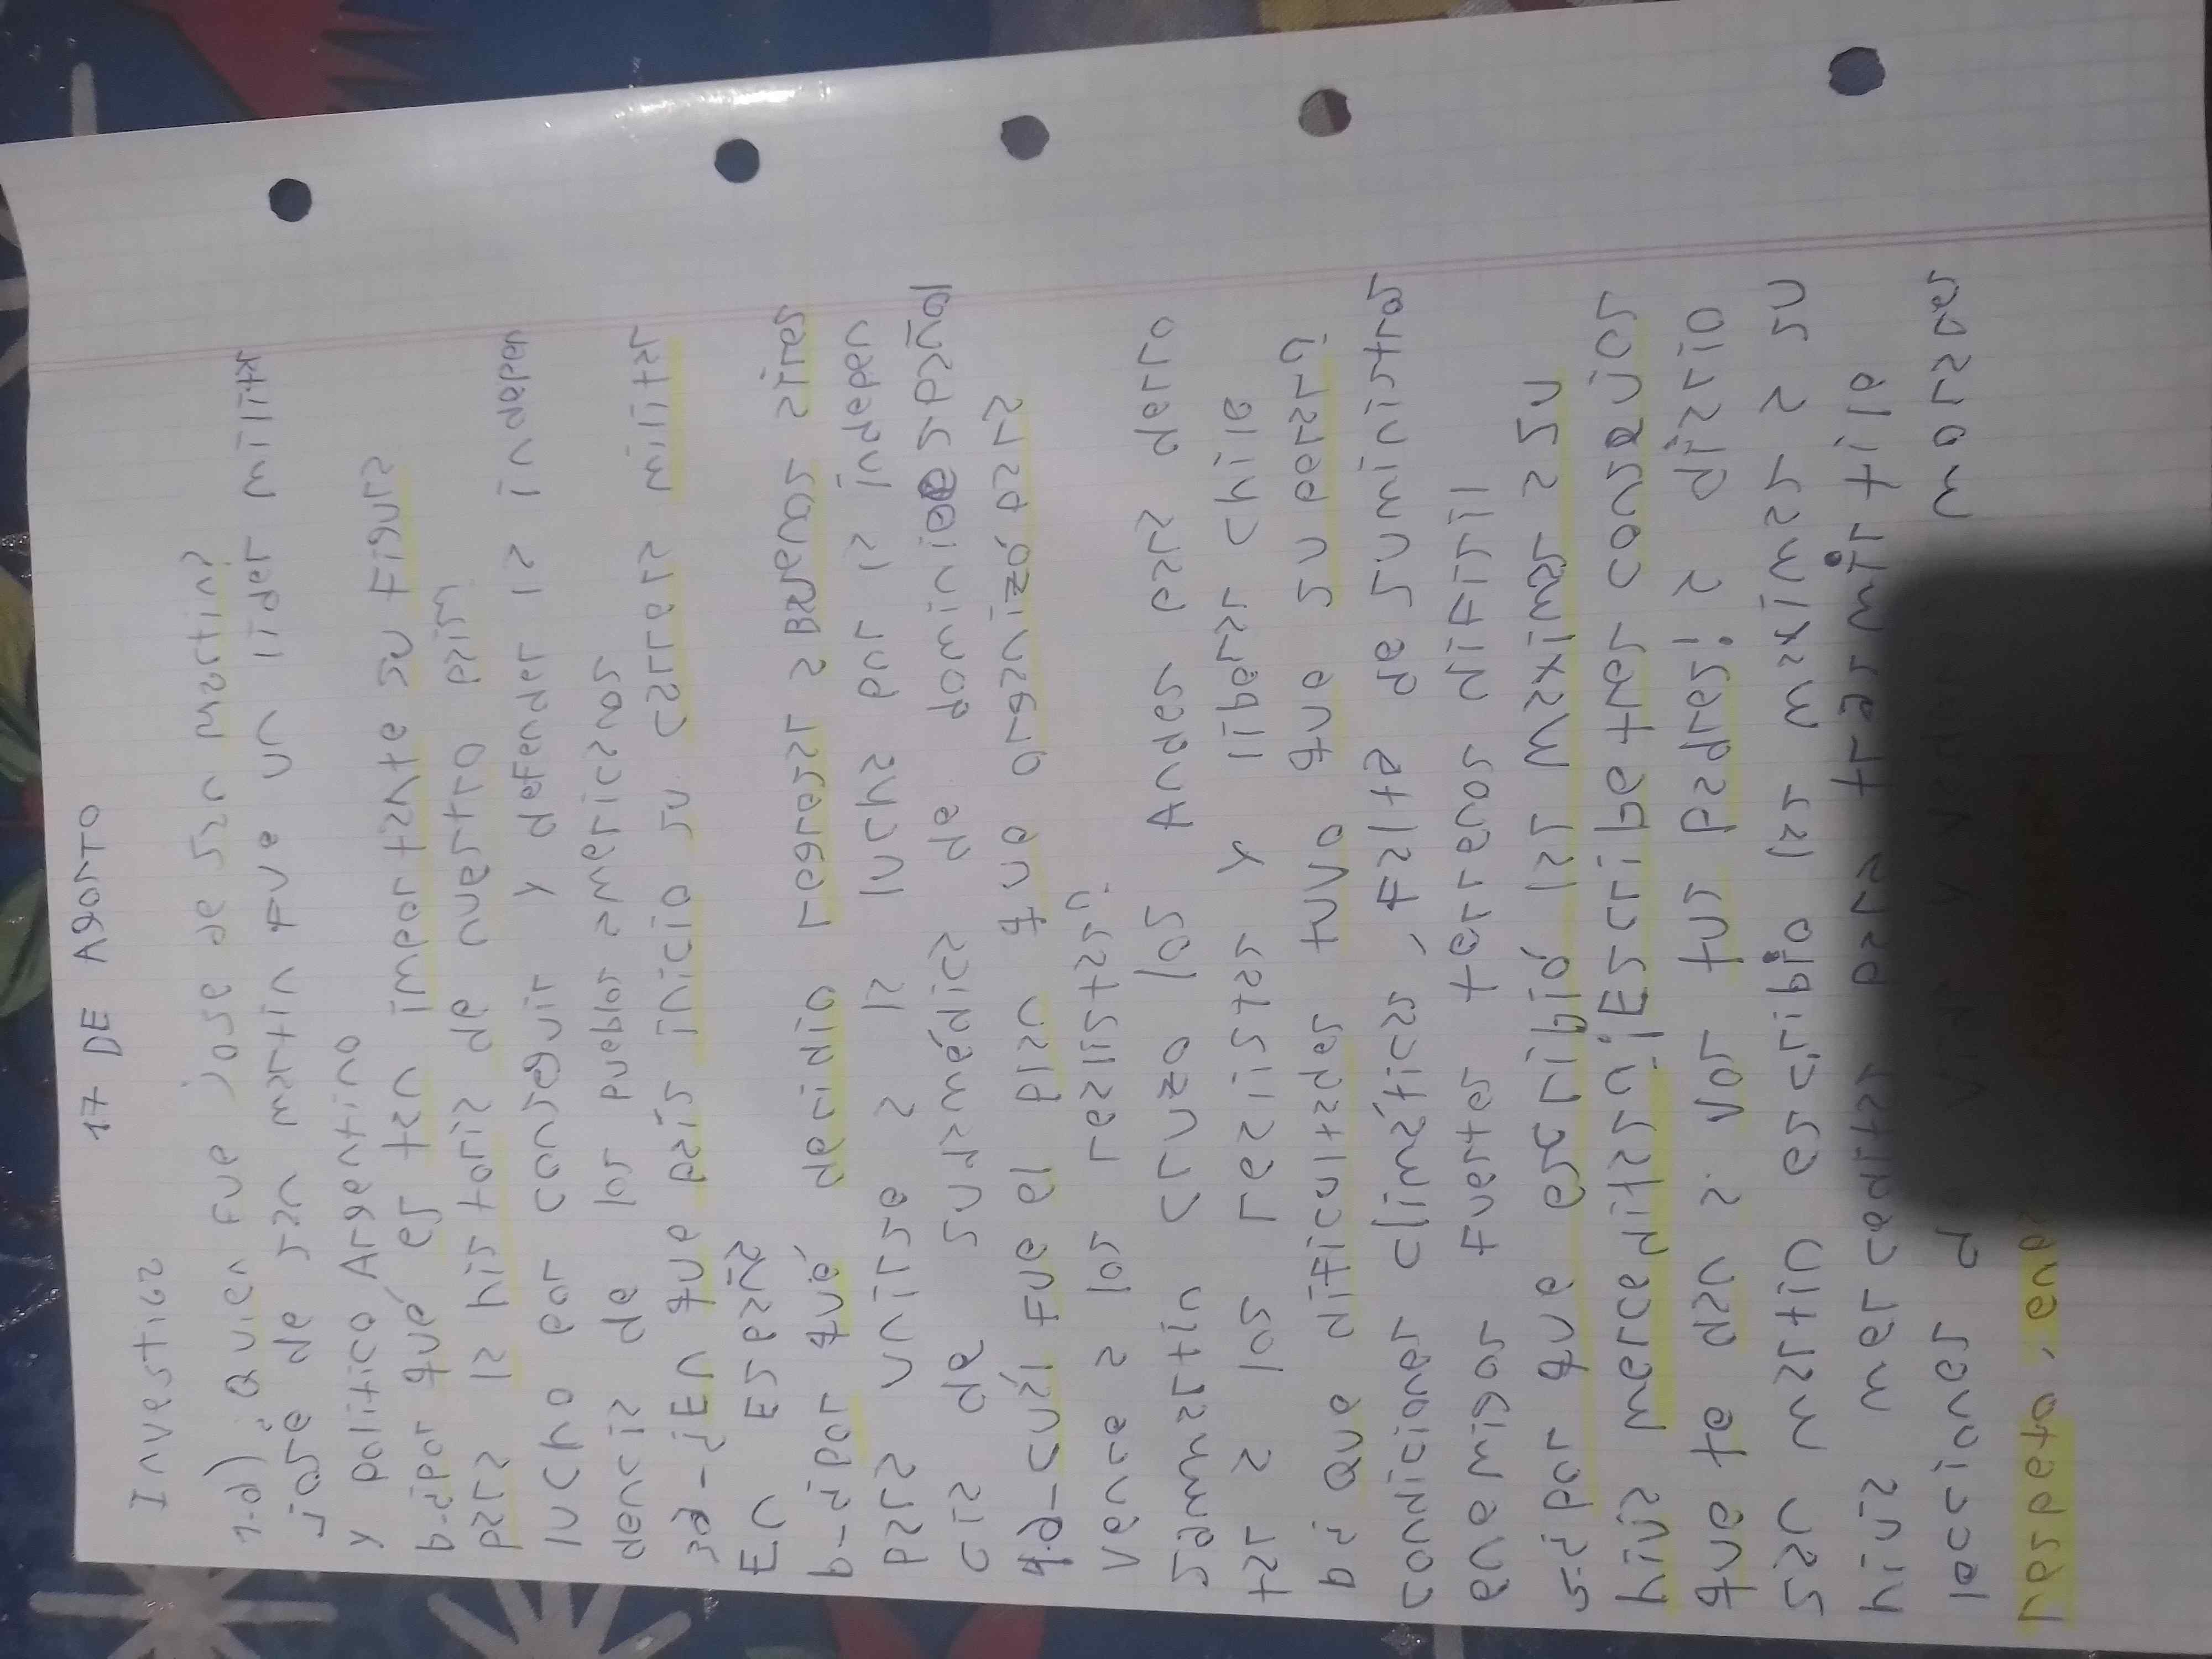 17 DE AGOSTO
Investiga
1-a) ¿Quien fue jose de san martin?
jose de san martin fue un lider militar
y politico Argentino
b-¿por qué es tan importante su figura
para la historia de nuestro país
lucho por conseguir y defender la indepen
dencia de los pueblos americanos
3a-¿En que país inicio su carrera militar
En España
b-¿por qué decidio regresar a Buenos aires
para unirse a la lucha por la indepen
cia de suramérica de dominio español
4.a-cuál fue el plan que organizó para
vence a los realistas.
San martin cruzo los Andes para dero
tar a los realistas y liberar chile
b ¿Que dificultades tuvo que superar
condiciones climáticas, falta de suministros
enemigos fuertes terrenos dificil
5-¿por que escribió las Maximas a su
hija mercedita? ¡Escribe tres consejos
que te dan a vos tus padres! a diario
San martin escribio las maximas a su
hija mercedita para trasmitirle
lecciones morales